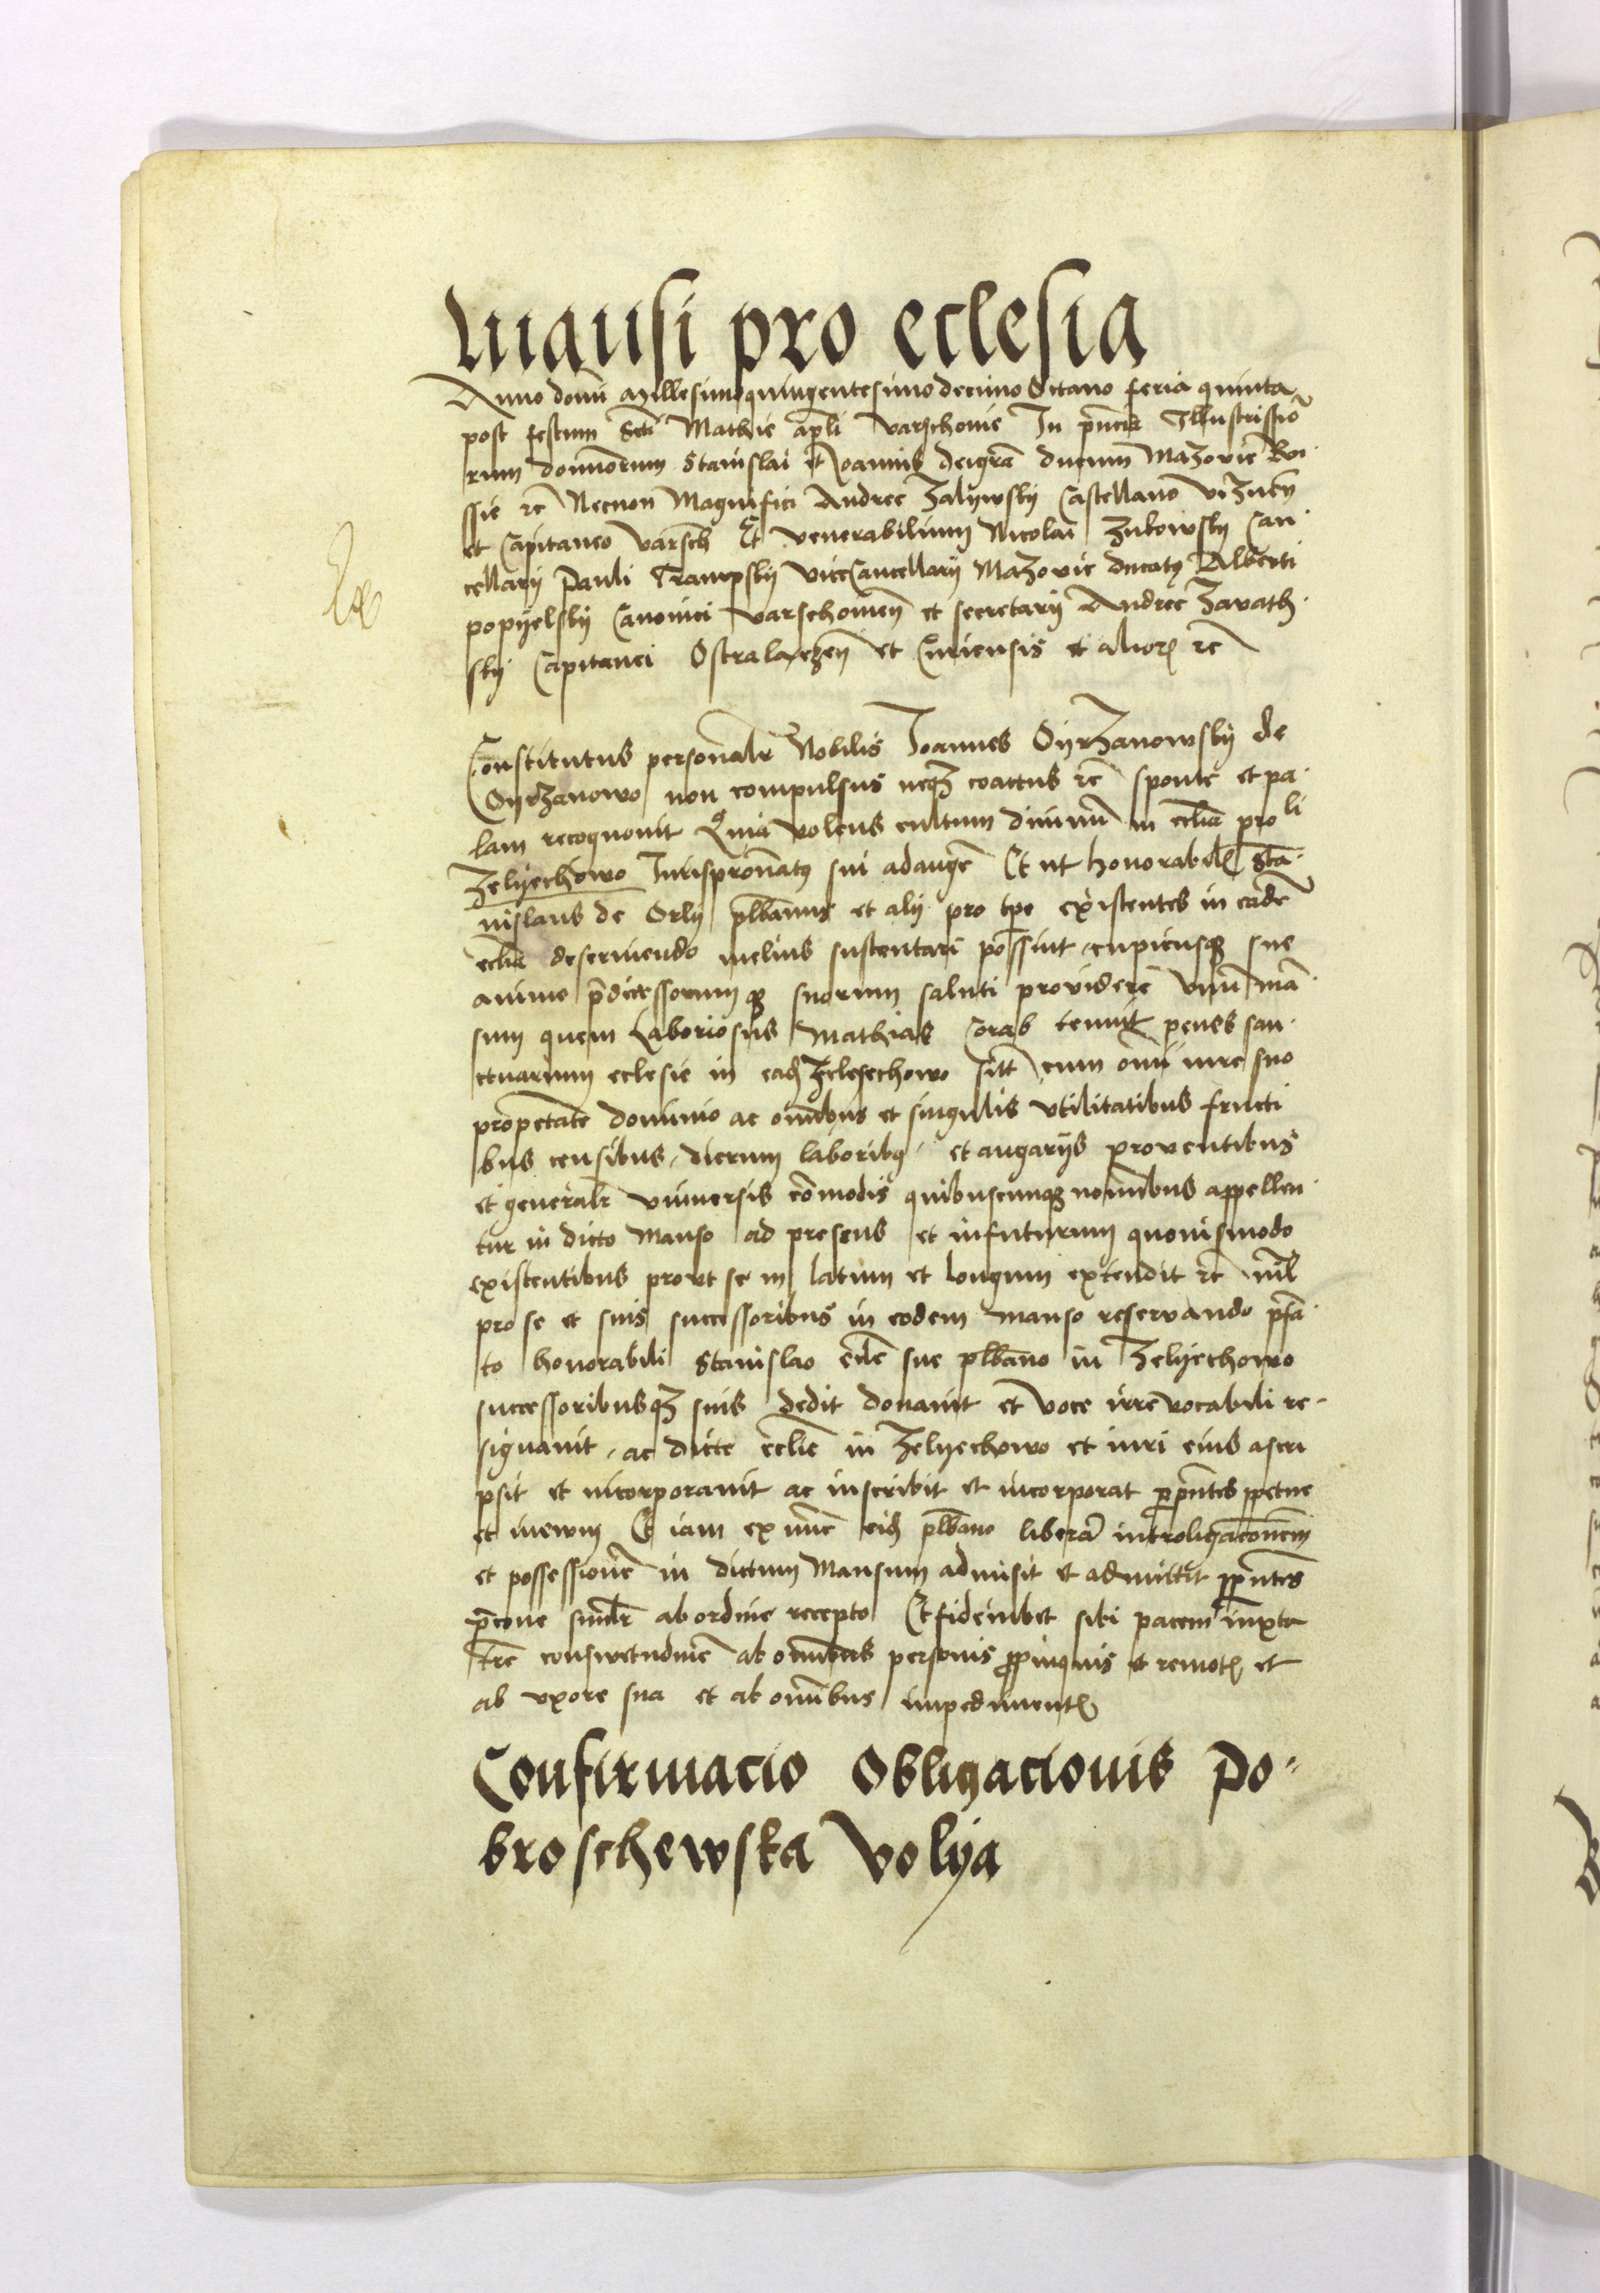 mansi pro eclesia
Anno domi millesimo quingentesimo decimo Octavo feria quinta
post festum Scti Mathie apli varschovie In pñcia Illustrissio
rum dominorum Stanislai et Joannis deigrã ducum Mazovie Rvi
ssie rc Necnon Magnifici Andree Zalywsky Castellano vizneñ
et Capitaneo varsch Et venerabilium Nicolai Zukowsky Can
cellarij Pauli vicecancellarij Mazovie ducatq Alberti
popyelsky Canonici varschovieñ et secretarij Andree Zavath
sky Capitanei Ostralaczeñ et Curiensis et alior rc
Constitutus personalr Nobilis Joannes Oyrzanowsky de
Oyrzanowo non compulsus neqz coactus rc sponte et pa
lam recognovit Quia volens cultum divinũ in ecliã pro li
Zelyechowo Jurispronatq sui adaugẽ Et ut honorabil Sta
nislaus de Orly plbanus et alij pro tpe existentes in eadẽ
eclia deserviendo melius sustentari possint cupiensqz sue
anime pdecessorumqz suorum saluti providere vnũ mã
sum quem Laboriosus Mathias Corab tenuit penes san
ctuarium eclesie in eadz Zelesechowo sitt cum omi iure suo
propetate dominio ac omibus et singulis vtilitatibus fructi
bus censibus dierum laboribq et angarijs proventibus
et generalr vniversis cõmodis quibuscunqz nominibus appellen
tur in dicto Manso ad presens et infuturum quovismodo
existentibus prout se in latum et longum extendit rc nil
pro se et suis successoribus in eodem manso reservando pfa
to honorabili Stanislao eclie sue plbano in Zelyechowo
successoribusqz suis dedit donavit et voce irrevocabili re
signavit ac dicte eclie in Zelyechowo et iuri eius ascri
psit et incorporavit ac inscribit et incorporat pp̃ntes ppetue
et inewm Et iam ex nũc eidz plbano liberã introligacionem
et possessionẽ in dictum Mansum admisit et admittit pp̃ntes
pcone similr ab ordine recepto Et fideiubet sibi pacem iuxta
trẽ conswetudinẽ ab omibus personis ppinquis et remotz et
ab vxore sua et ab omibus impedimentz
Confirmacio Obligacionis Do
broschewska volya